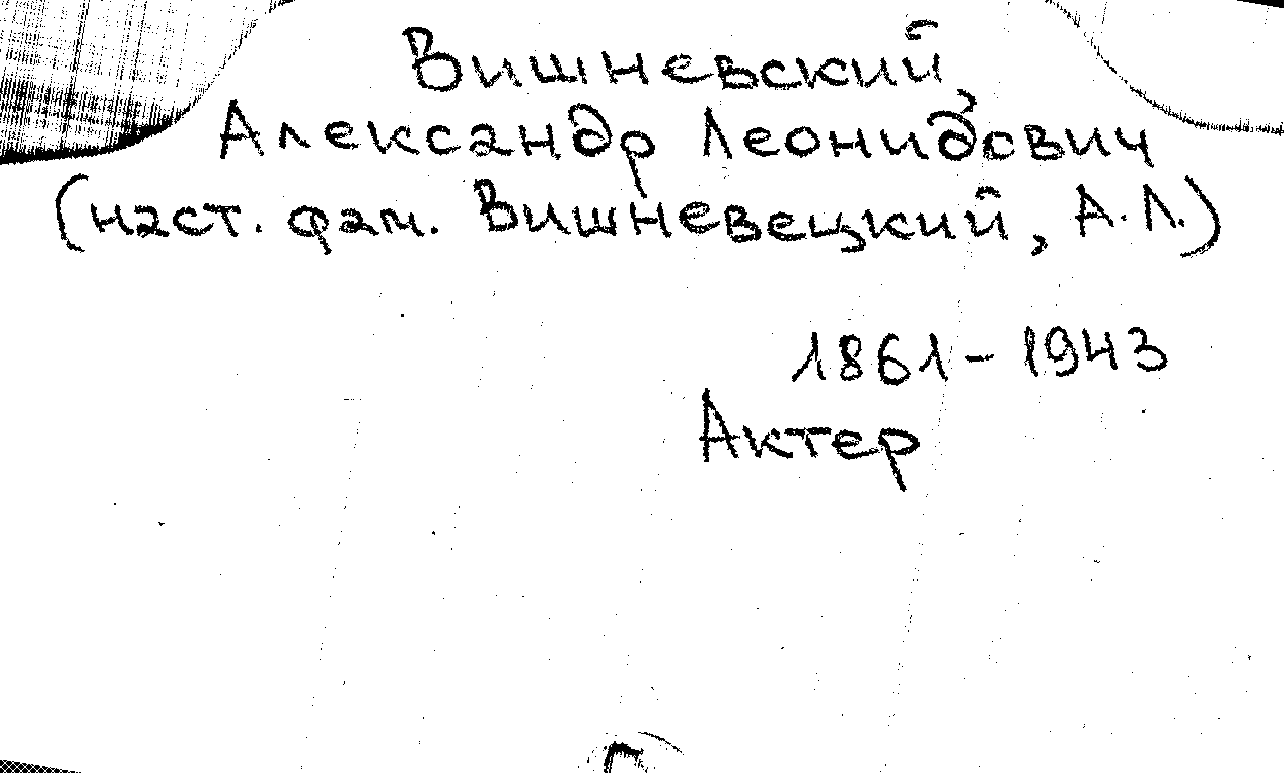 Вишневский,
Александр Леонидович
(наст. фам. Вишневецкий, А.Л.)
1861-1943
Актер